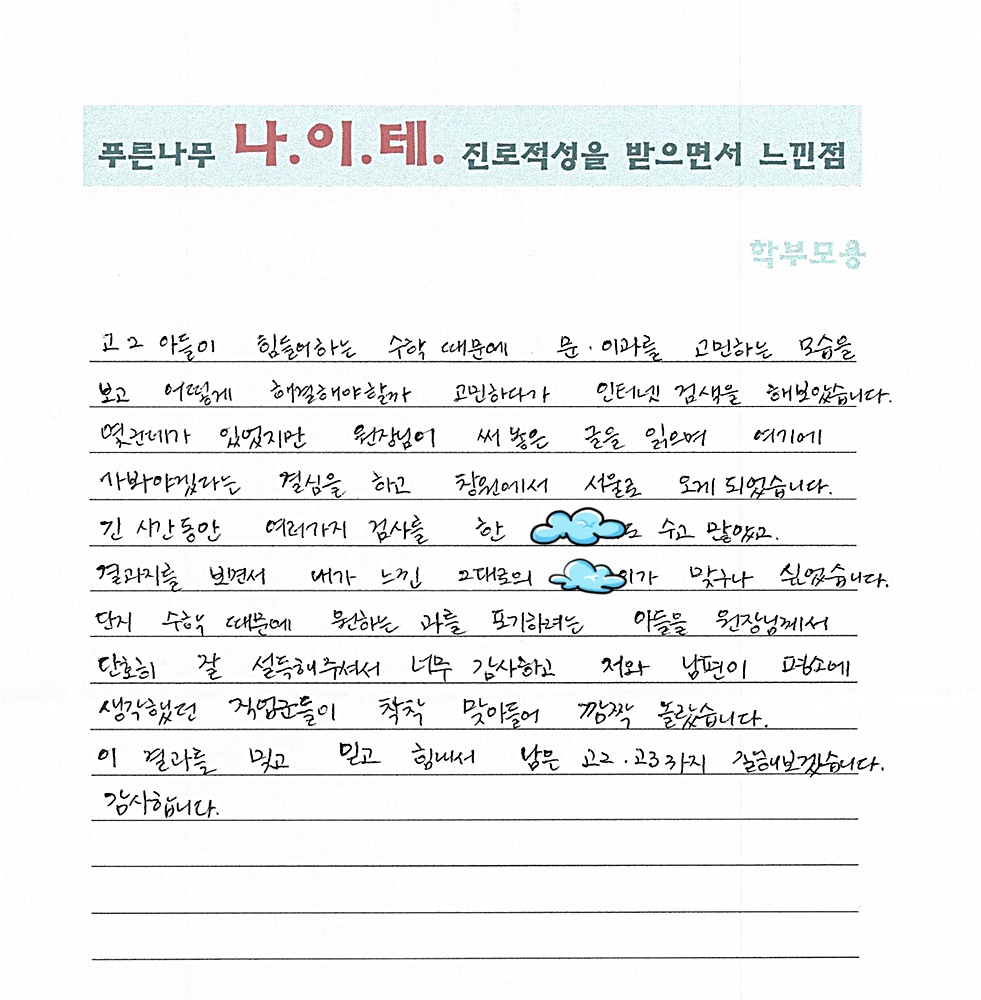 푸른나무 나.이.테. 진로적성을 받으면서 느낀점
학부모용
고2 아들이 힘들어하는 수학 때문에 문·이과를 고민하는 모습을
보고 어떻게 해결해야할까 고민하다가 인터넷 검색을 해보았습니다.
몇군데가 있었지만 원장님이 써 놓은 글을 읽으며 여기에
가봐야겠다는 결심을 하고 창원에서 서울로 오게 되었습니다.
긴 시간동안 여러가지 검사를 한 도 수고 많았고.
결과지를 보면서 내가 느낀 그대로의 이가 맞구나 싶었습니다.
단지 수학 때문에 원하는 과를 포기하려는 아들을 원장님께서
단호히 잘 설득해주셔서 너무 감사하고 저와 남편이 평소에
생각했던 직업군들이 착착 맞아들어 깜짝 놀랐습니다.
이 결과를 믿고 믿고 힘내서 남은 고2·고3까지 잘해보겠습니다.
감사합니다.